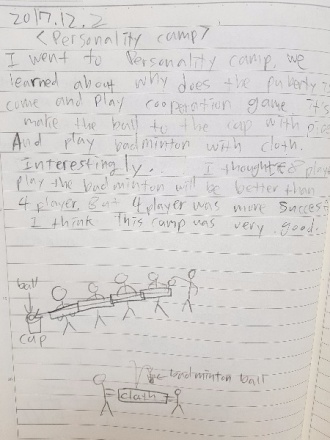 2017.12.2
<Personality camp>
I went to Personality camp, we
learned about why does the puberty is
come and play cooperation game it's
make the ball to the cup with
And play badminton with cloth.
Interestingly.. I thought 8 player
play the badminton will be better than
4 player, But 4 player was more
I think This camp was very good.
ball
cup
badminton ball
cloth